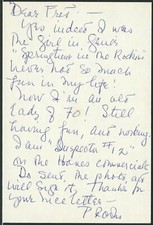 Dear Fred —
You indeed I was
the Girl in Jeans
"Springtime in the Rockies"
Never had so much
fun in my life!
Now I'm an old
Lady of 70! Still
having fun, and working.
I am "Inspector #12"
on the Hanes commercials
Do send the photos, as I
will sign it, Thanks for
your nice letter —